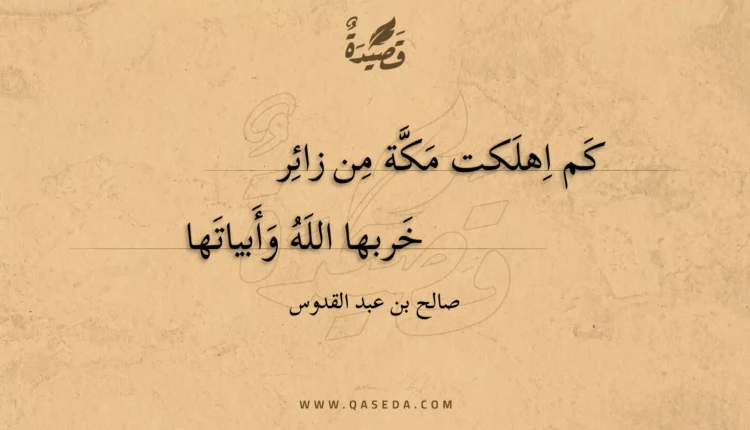 قَصِيدَةٌ
كَم اِهلَكت مَكَّة مِن زائِر
خَربها اللَهُ وَأَبياتَها
صالح بن عبد القدوس
WWW.QASEDA.COM